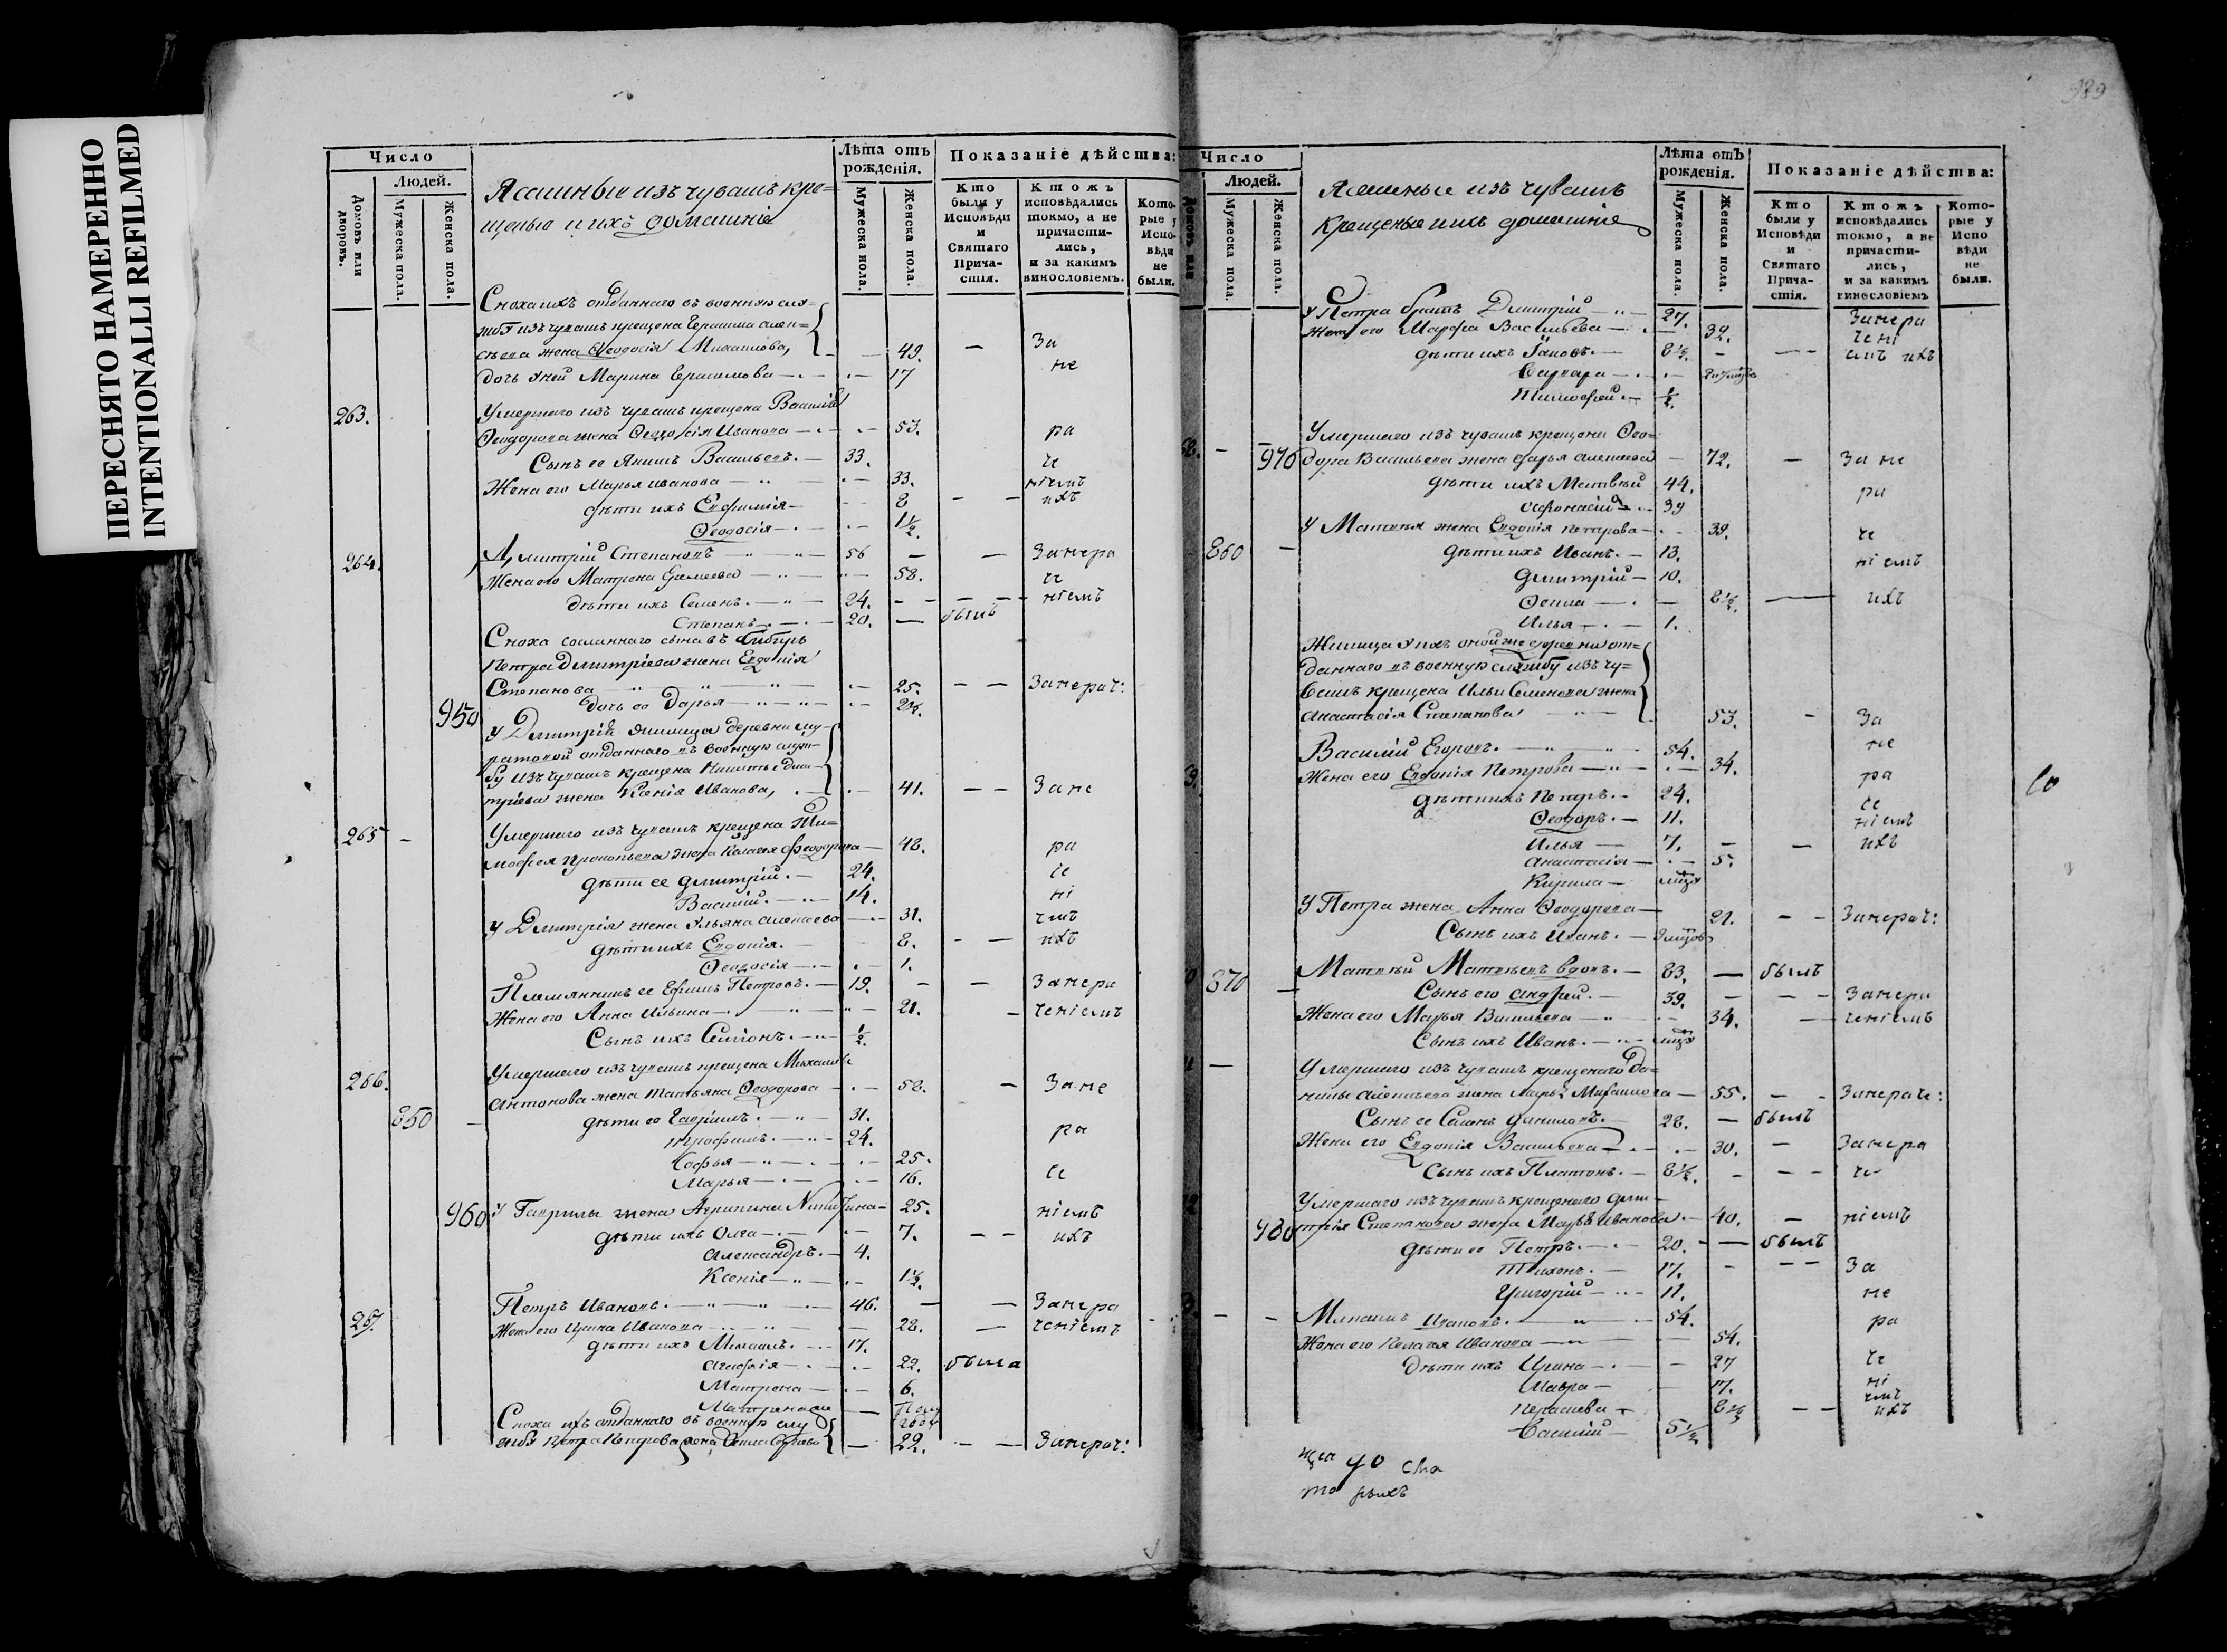 ПЕРЕСНЯТО НАМЕРЕННО
INTENTIONALLI REFILMED
Число
Людей.
Домовъ или дворовъ.
Мужеска пола.
Женска пола.
Ясашные изъ чувашъ кре=
щеные и ихъ домашніе
Лѣта отъ рожденія.
Мужеска пола.
Женска пола.
Показаніе дѣйства:
Кто были у Исповѣди и Святаго Прича-стія.
Ктожъ исповѣдались токмо, а не причасти-лись, и за какимъ винословіемъ.
Кото-рые у Испо-вѣди не были.
Сноха ихъ отданнаго въ военную слу=
жбу изъ чувашъ крещена Герасима Алек=
сѣева жена Ѳеодосія Михайлова, 49. За
дочь у ней Марина Герасимова 17 не
263. Умершаго изъ чувашъ крещена Василья
Ѳеодорова жена Ѳеодосія Иванова 53. ра
Сынъ ее Якимъ Васильевъ. 33. че
Жена его Марья Иванова 33. ніемъ
дѣти ихъ Евфимія 8 ихъ
Ѳеодосія 1½.
264. Димитрій Степановъ 56 За нера
Жена его Матрена Еремеева 58. че
дѣти ихъ Семенъ. 24. ніемъ
Степанъ 20. былъ
Сноха сосланнаго сына въ Сибирь
Петра Димитріева жена Евдокія
Степанова 25. За нерач:
950 дочь ее Дарья 2½.
У Димитрія жилица деревни Му-
ратовой отданнаго въ военную служ-
бу изъ чувашъ крещена Никиты Дми-
тріева жена Ксенія Иванова, 41. За не
265 Умершаго изъ чувашъ крещена Ти=
мофея Прокопьева жена Пелагея Ѳеодорова 48. ра
дѣти ее Димитрій. 24. че
Василій. 14. ні
У Димитрія жена Ульяна Алексеева 31. емъ
дѣти ихъ Евдокія. 8. ихъ
Ѳеодосія 1.
Племянникъ ее Ефимъ Петровъ. 19. За нера
Жена его Анна Ильина 21. ченіемъ
Сынъ ихъ Семіонъ. ½
266. Умершаго изъ чувашъ крещена Михаила
Антонова жена Татьяна Ѳеодорова 58. За не
850 дѣти ее Гаврилъ. 31.
Трофимъ. 24. ра
Софья 25.
Марья 16. че
960 У Гаврилы жена Агрипина Никитина 25. ніемъ
дѣти ихъ Олга 7. ихъ
Александръ. 4.
Ксенія 1½.
267. Петръ Ивановъ. 46. За нера
Жена его Ирина Иванова 28. ченіемъ
дѣти ихъ Михаилъ. 17.
Агафія 22. была
Матрена 6.
Сноха ихъ отданнаго въ военную слу
жбу Петра Петрова жена 29. За нерач:
989
Число
Людей.
Домовъ или
Мужеска пола.
Женска пола.
Ясашные изъ чувашъ
крещеные и ихъ домашніе
Лѣта отъ рожденія.
Мужеска пола.
Женска пола.
Показаніе дѣйства:
Кто были у Исповѣди и Святаго Прича-стія.
Ктожъ исповѣдались токмо, а не причасти-лись, и за какимъ винословіемъ
Кото-рые у Испо вѣди не были.
У Петра братъ Димитрій 27. За нера
Жена его Марфа Васильева 32. чені
дѣти ихъ Іаковъ. 8½. емъ ихъ
Варвара
Тимофей ½.
Умершаго изъ чувашъ крещена Ѳео=
970 дора Васильева жена Дарья Алексеева 72. За не
дѣти ихъ Матвѣй 44. ра
Афонасій 39
У Матвѣя жена Евдокія Петрова 39. че
860 дѣти ихъ Иванъ. 13. ніемъ
Димитрій 10.
Ѳекла 8½. ихъ
Илья 1.
Жилица у нихъ оной же деревни от=
даннаго въ военную службу изъ чу=
вашъ крещена Ильи Семенова жена
Анастасія Степанова 53. За
Василій Егоровъ. 54. не
Жена его Евдокія Петрова 34. ра
дѣти ихъ Петръ. 24. че
Ѳеодоръ. 11. ніемъ
Илья 7. ихъ
Анастасія 5.
Кирила
У Петра жена Анна Ѳеодорова 21. За нерач:
Сынъ ихъ Иванъ.
Матвѣй Матвѣевъ вдовъ. 83. былъ
870 Сынъ его Андрей. 39. За нера
Жена его Марья Васильева 34. ченіемъ
Сынъ ихъ Иванъ.
Умершаго изъ чувашъ крещенаго Да=
нилы Алексеева жена Марья Михайлова 55. За нерач:
Сынъ ее Семенъ Даниловъ. 28. былъ
Жена его Евдокія Васильева 30. За нера
Сынъ ихъ Платонъ. 8½. че
Умершаго изъ чувашъ крещенаго Дми-
980 трія Степанова жена Марья Иванова 40. ніемъ
дѣти ее Петръ. 20. былъ
Тихонъ. 17. За
Григорій 11. не
Михаилъ Ивановъ. 54. ра
Жена его Пелагея Иванова 54.
дѣти ихъ Ирина 27 че
Мавра 17. ні
емъ
ихъ
Василій 5½